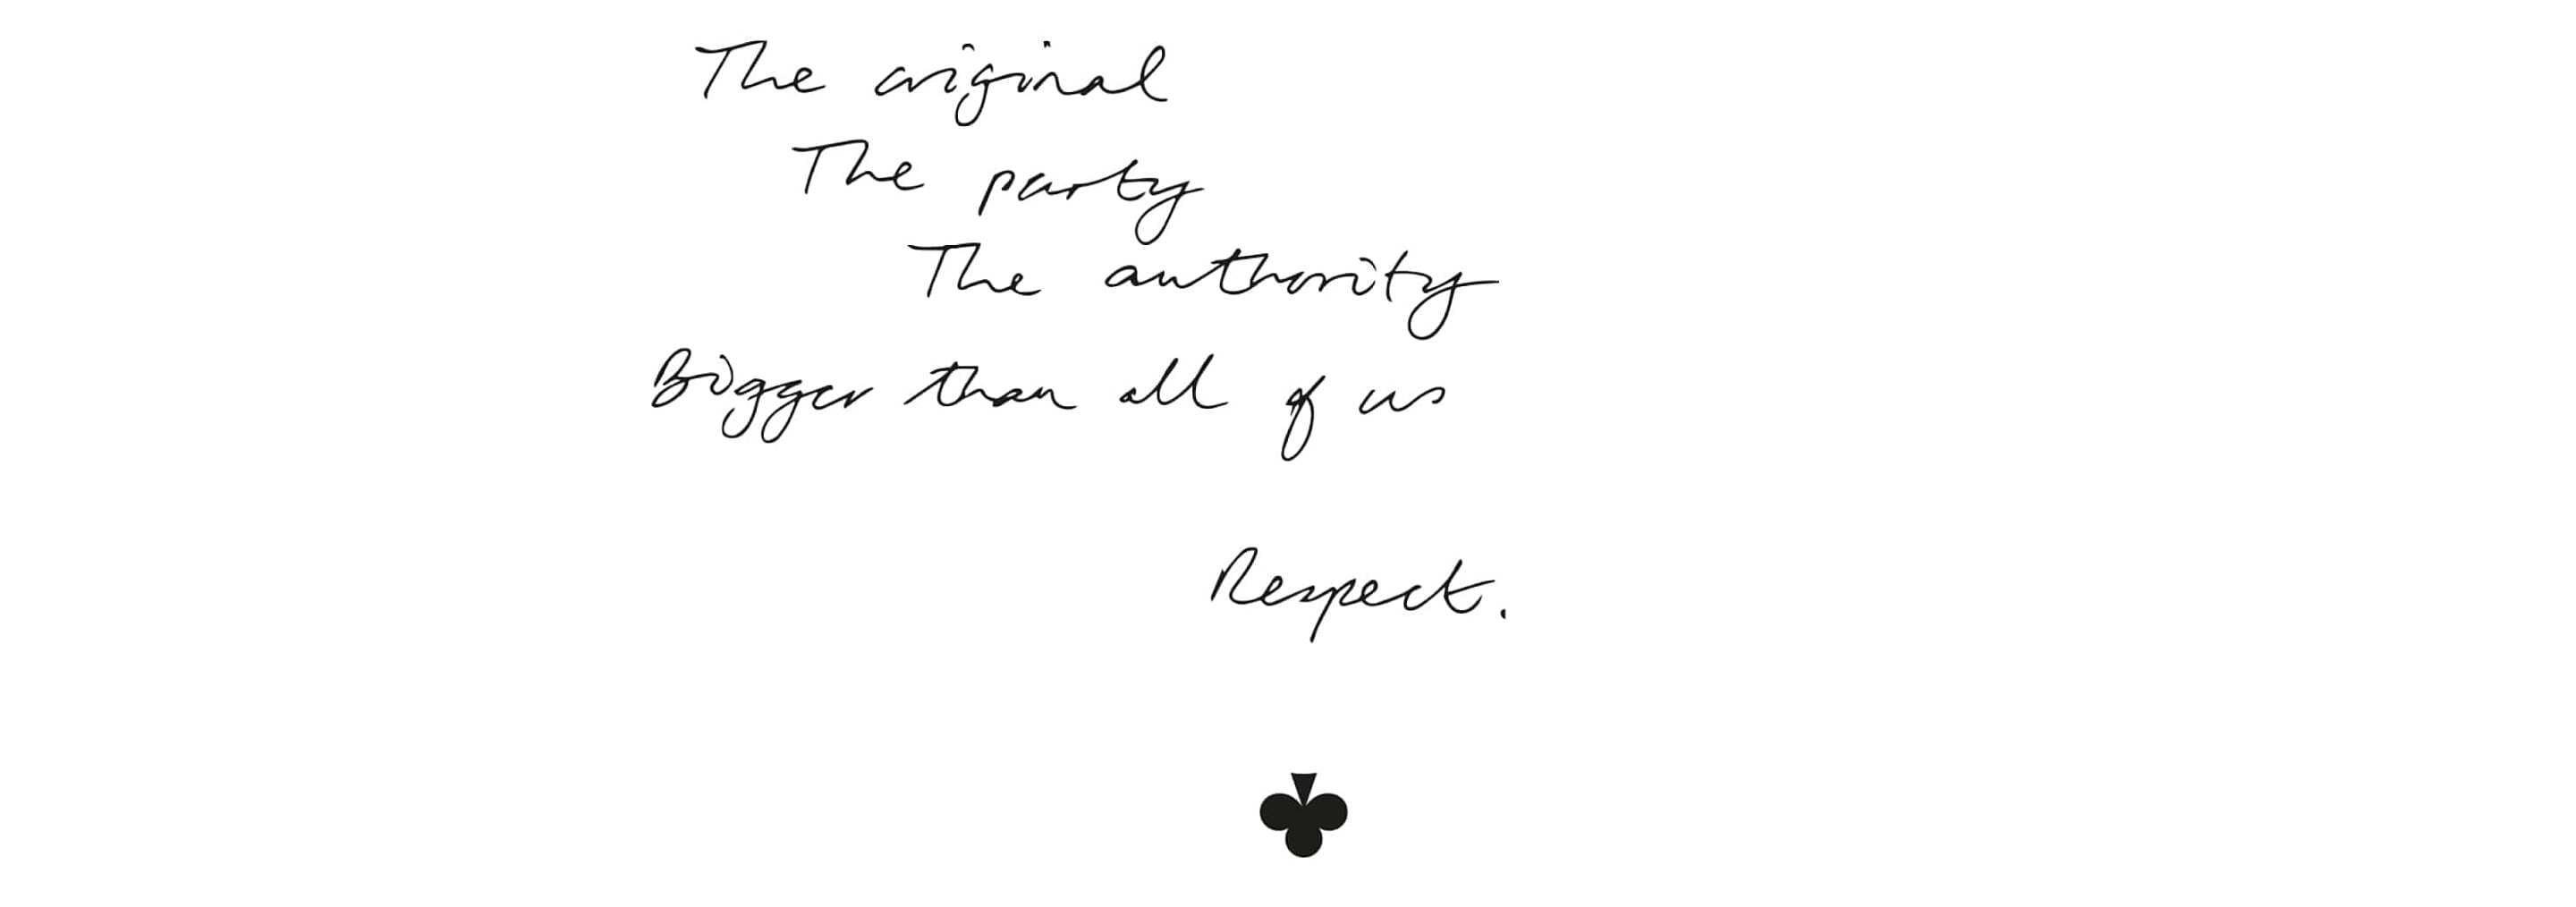 The original
The party
The authority
Bigger than all of us
Respect.